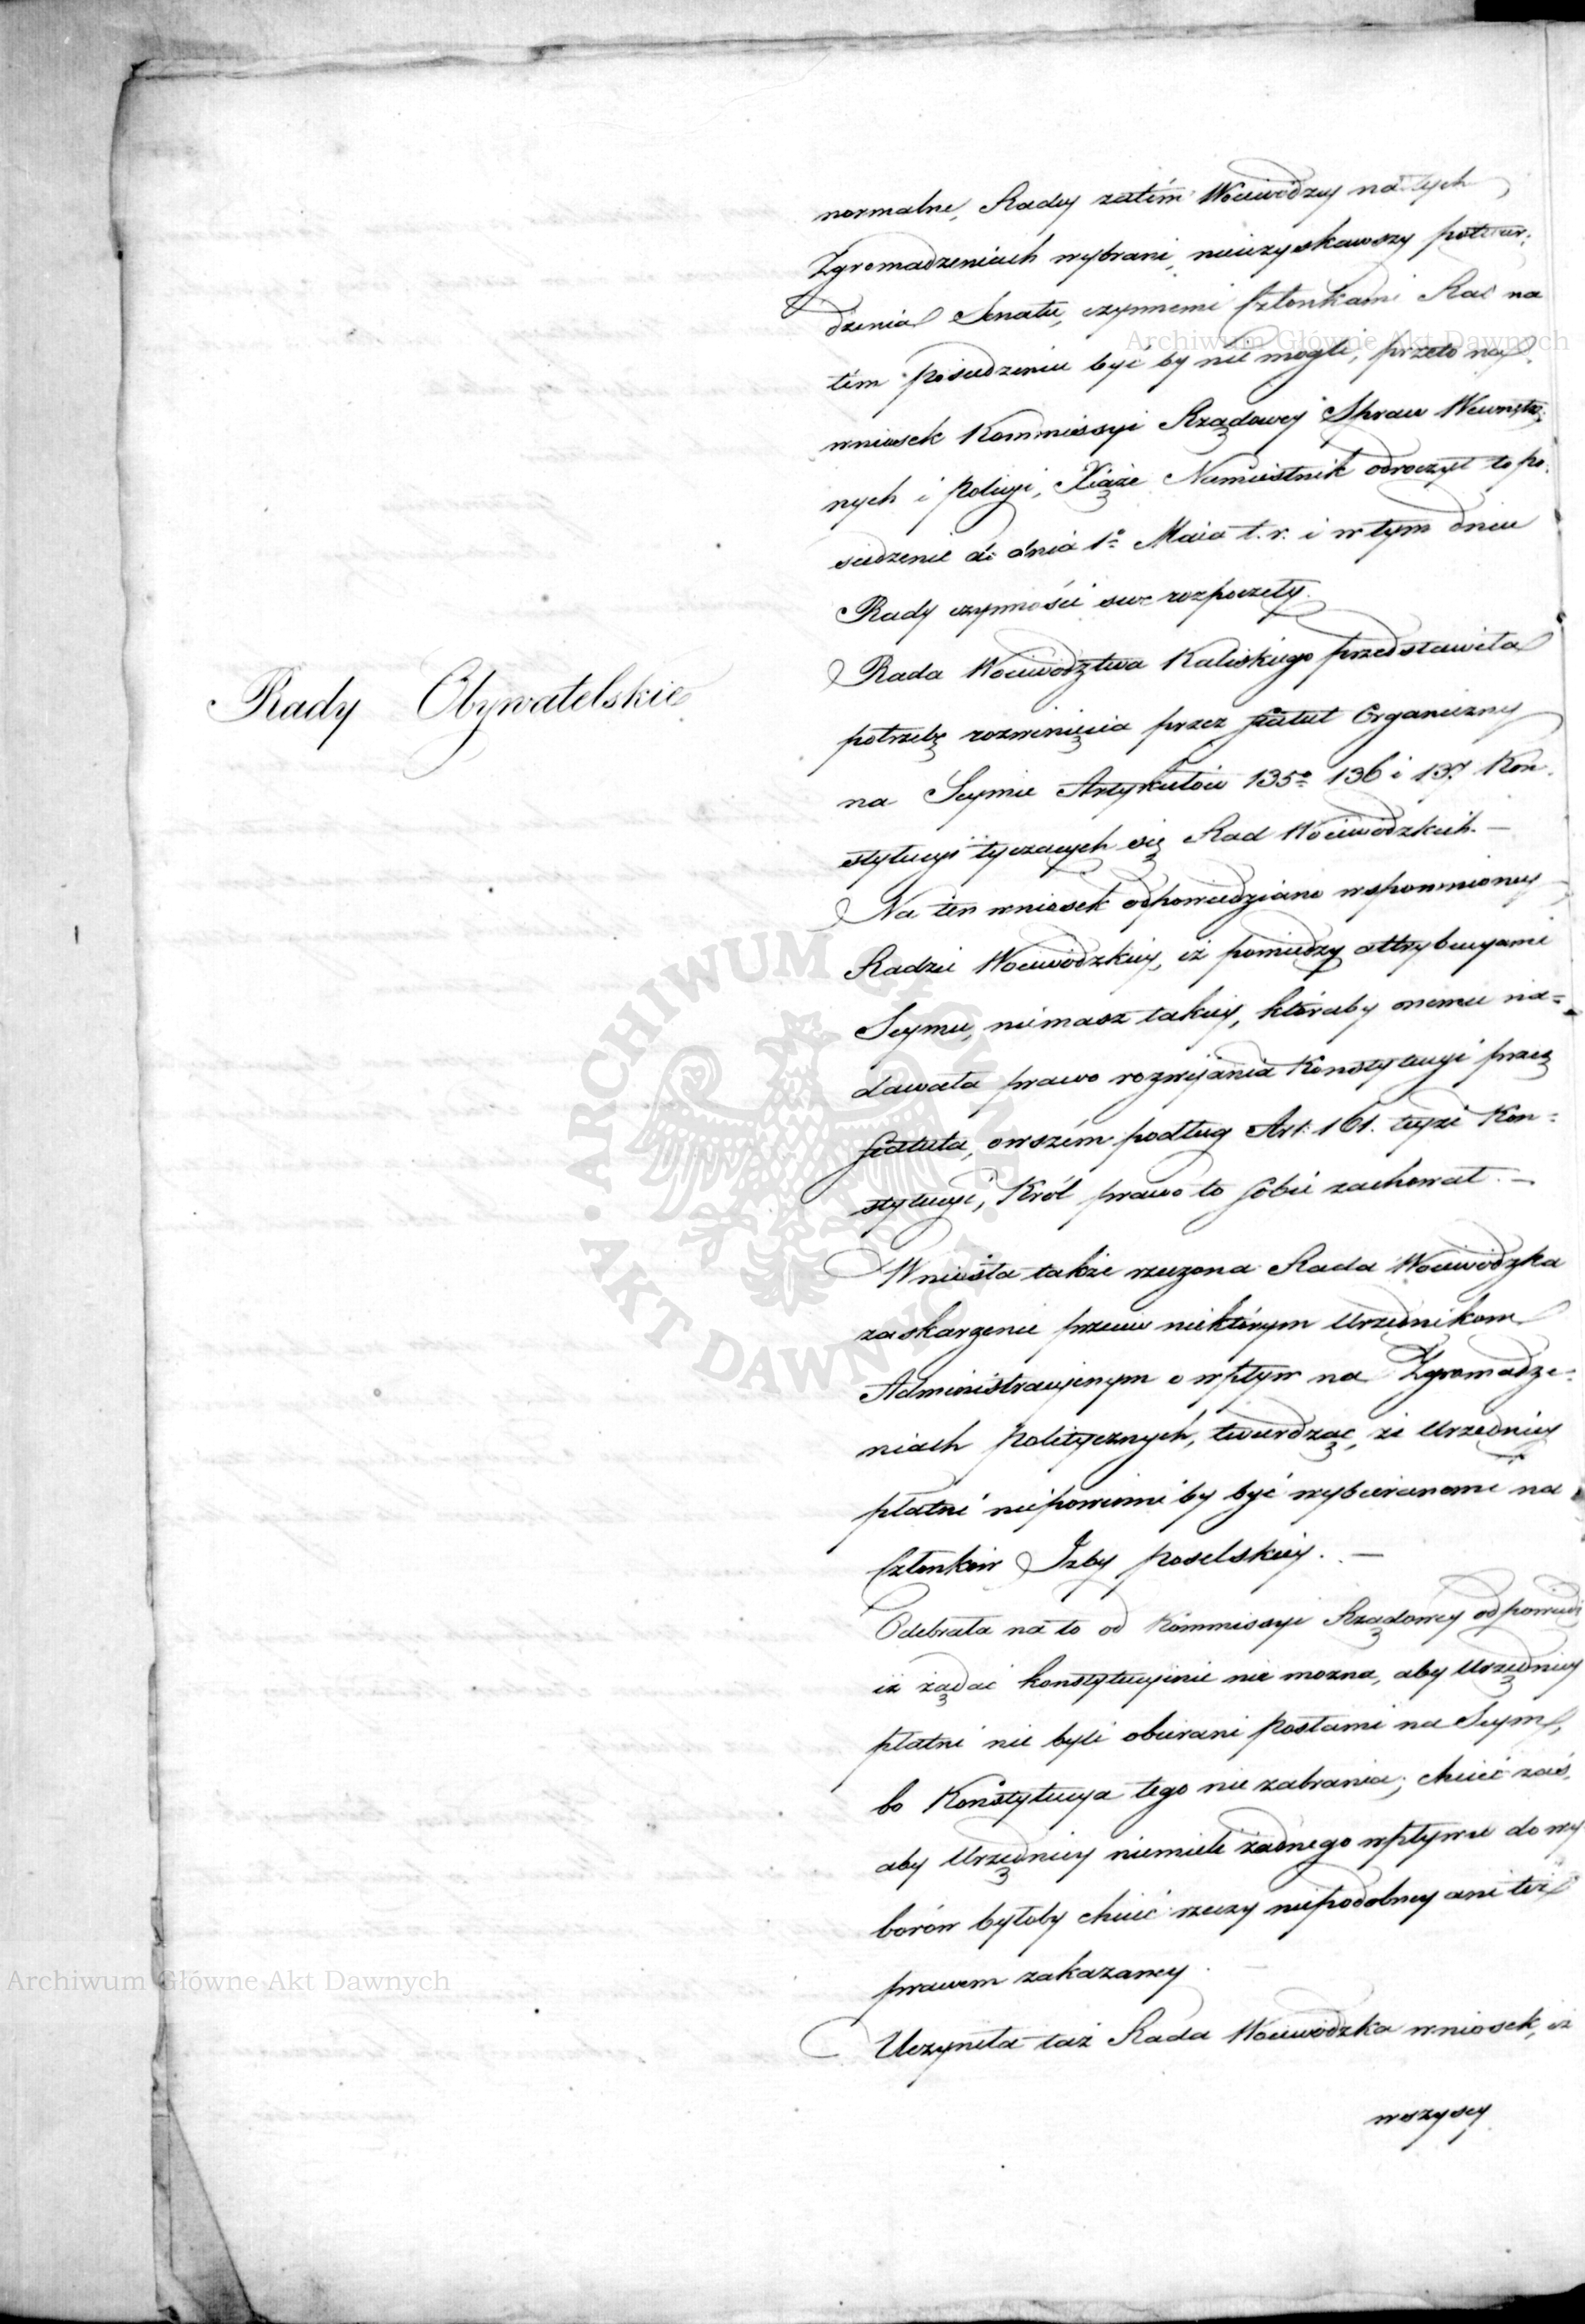 normalne, Radcy zatém Wojewódzcy na tych
Zgromadzeniach wybrani, nieuzyskawszy potwier:
dzenia Senatu, czynnemi Członkami Rad na
tém posiedzeniu być by nie mogli, przeto na
wniosek Kommissyi Rządowey Spraw Wewnętrz:
nych i Policyi, Xiąże Namiestnik odroczył to po:
siedzenie do dnia 1º Maia t. r. i w tym dniu
Rady czynności swe rozpoczęły.
Rady Obywatelskie
Rada Woiewództwa Kaliskiego przedstawiła
potrzebę rozwinięcia przez Statut Organiczny
na Seymie Artykułów 135º 136 i 137 Kon:
stytucyi tyczących się Rad Woiewódzkich. —
Na ten wniosek odpowiedziano wspomnioney
Radzie Woiewódzkiey, iż pomiędzy attrybucyami
Seymu, niemasz takiey, któraby onemu na=
dawała prawo rozwijania Konstytucyi przez
Statuta, owszém podług Art: 161. teyże Kon=
stytucyi, Król prawo to sobie zachował. —
Wniosła także rzeczona Rada Woiewódzka
zaskarzenie przeciw niektórym Urzędnikom
Administracyjnym o wpływ na Zgromadze=
niach Politycznych, twierdząc, że Urzędnicy
płatni niepowinni by być wybieranemi na
Członków Izby Poselskiey. —
Odebrała na to od Kommissyi Rządowey odpowiedź
iż żądać konstytucyjnie nie można, aby Urzędnicy
płatni nie byli obierani Posłami na Seym,
bo Konstytucya tego nie zabrania; chcieć zaś,
aby Urzędnicy niemieli żadnego wpływu do wy
borów byłoby chcieć rzeczy niepodobney ani też
prawem zakazaney. —
Uczyniła taż Rada Woiewódzka wniosek, iż
wszyscy
Archiwum Główne Akt Dawnych
Archiwum Główne Akt Dawnych
ARCHIWUM GŁÓWNE AKT DAWNYCH